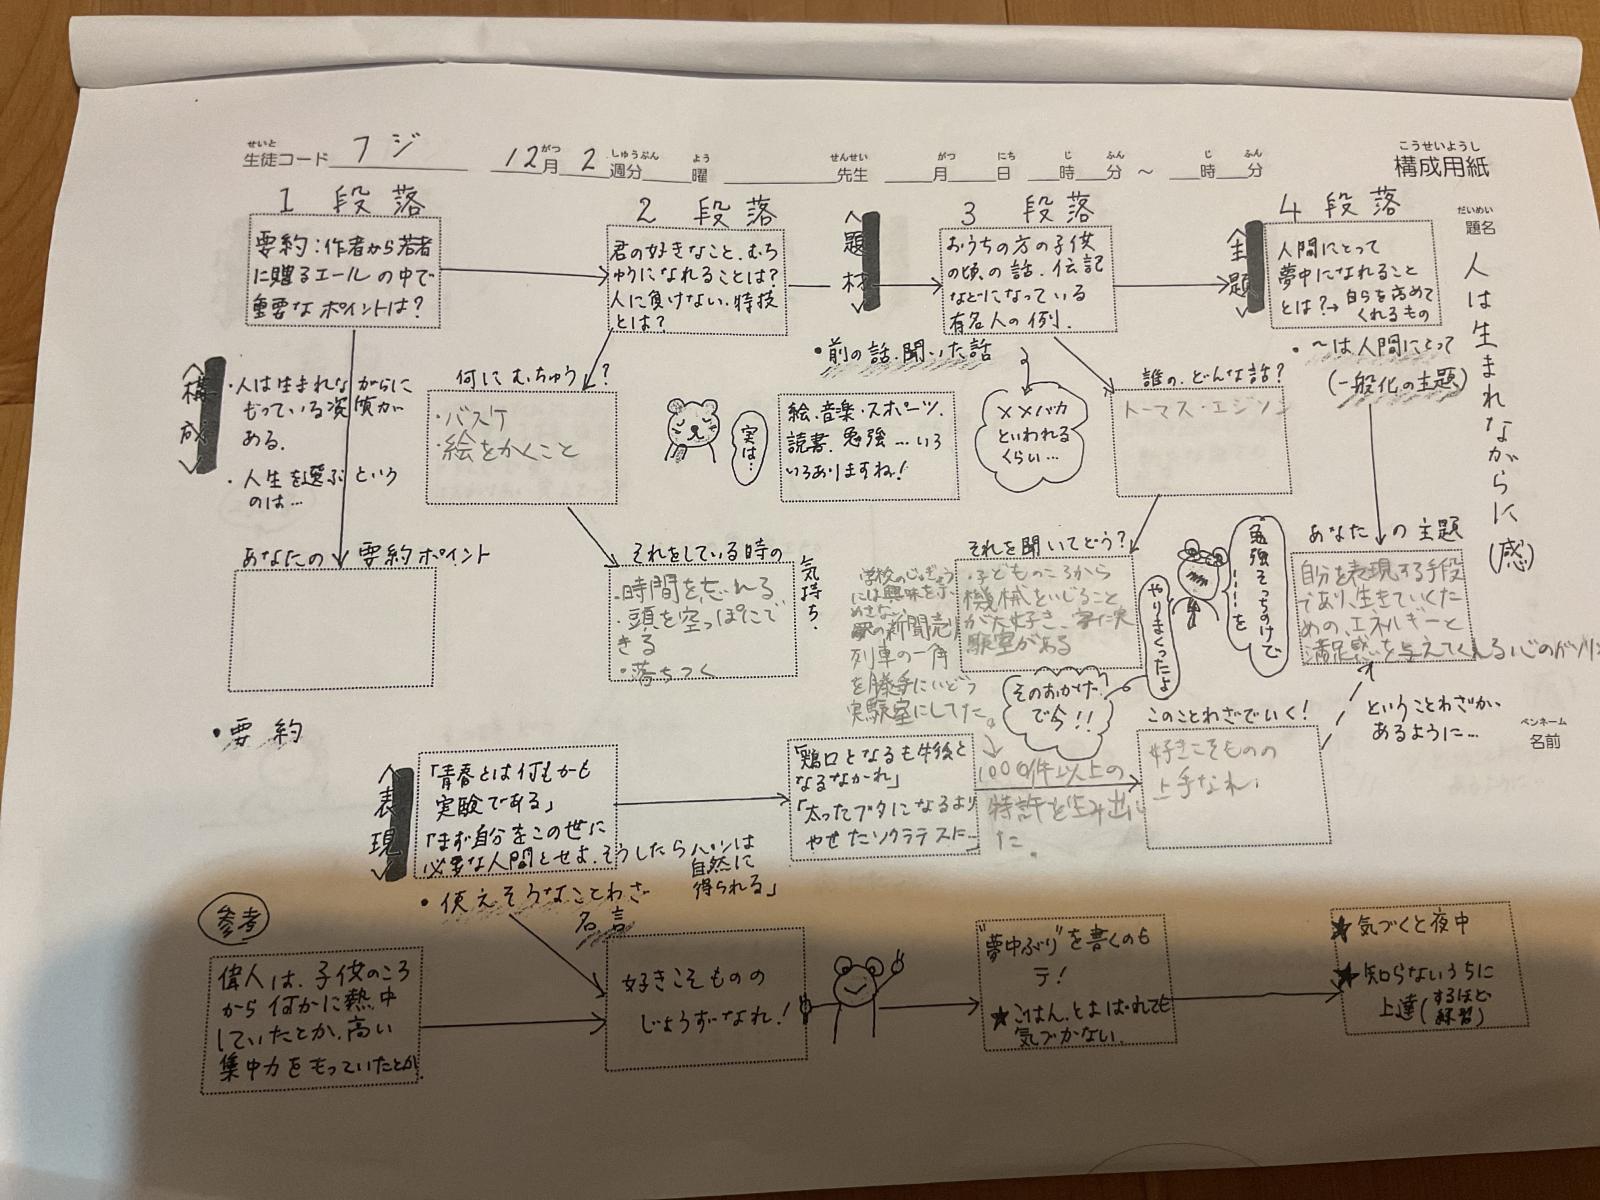 せいと
生徒コード フジ
12月 2 週分 曜
がつ しゅうぶん よう
先生 月 日 時 分 ～ 時 分
せんせい がつ にち じ ふん じ ふん
こうせいようし
構成用紙
だいめい
題名
人は生まれながらに(感)
ペンネーム
名前
1 段落
要約:作者から若者
に贈るエールの中で
重要なポイントは?
2 段落
君の好きなこと、むち
ゅうになれることは?
人に負けない特技
とは?
<題材>
3 段落
おうちの方の子供
の頃の話、伝記
などになっている
有名人の例.
<主題>
4 段落
人間にとって
夢中になれること
とは?→自らを高めて
くれるもの
<構成>
・人は生まれながらに
もっている資質が
ある.
・人生を選ぶという
のは…
何にむちゅう?
・バスケ
・絵をかくこと
実は…
・前の話.聞いた話
絵.音楽・スポーツ.
読書.勉強…いろ
いろありますね!
××バカ
といわれる
くらい…
誰の、どんな話?
トーマス・エジソン
・～は人間にとって
(一般化の主題)
あなたの要約ポイント
・要約
それをしている時の
気持ち.
・時間を忘れる
・頭を空っぽにで
きる
・落ちつく
学校のじゅぎょう
には興味を示
めさない
の新聞売り
列車の一角
を勝手にいどう
実験室にしてた。
それを聞いてどう?
・子どものころから
機械をいじること
が大好き、家に実
験室がある
勉強そっちのけで
……を
やりまくったよ
そのおかげ
で今!!
1000件以上の
特許を生み出し
た.
あなたの主題
自分を表現する手段
であり、生きていくた
めの、エネルギーと
満足感を与えてくれる心のガソリン
ということわざが.
あるように…
このことわざでいく!
好きこそものの
上手なれ
<表現>
「青春とは何もかも
実験である」
「まず自分をこの世に
必要な人間とせよ.そうしたらパンは
自然に
得られる」
・使えそうなことわざ
名言
「鶏口となるも牛後と
なるなかれ」
「太ったブタになるより
やせたソクラテスに…
参考
偉人は、子供のころ
から何かに熱中
していたとか、高い
集中力をもっていたとか.
好きこそものの
じょうずなれ!
"夢中ぶり"を書くのも
テ!
★ごはん、とよばれても
気づかない.
★気づくと夜中
★知らないうちに
上達(するほど
練習)